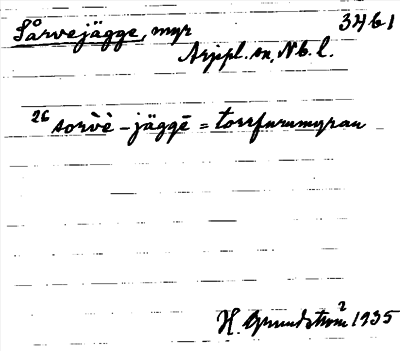 Sårvejägge, myr 3461
Arjpl. sn, Nb. l.
26 sorvè - jäggē = torrfurumyran
H. Grundström 1935